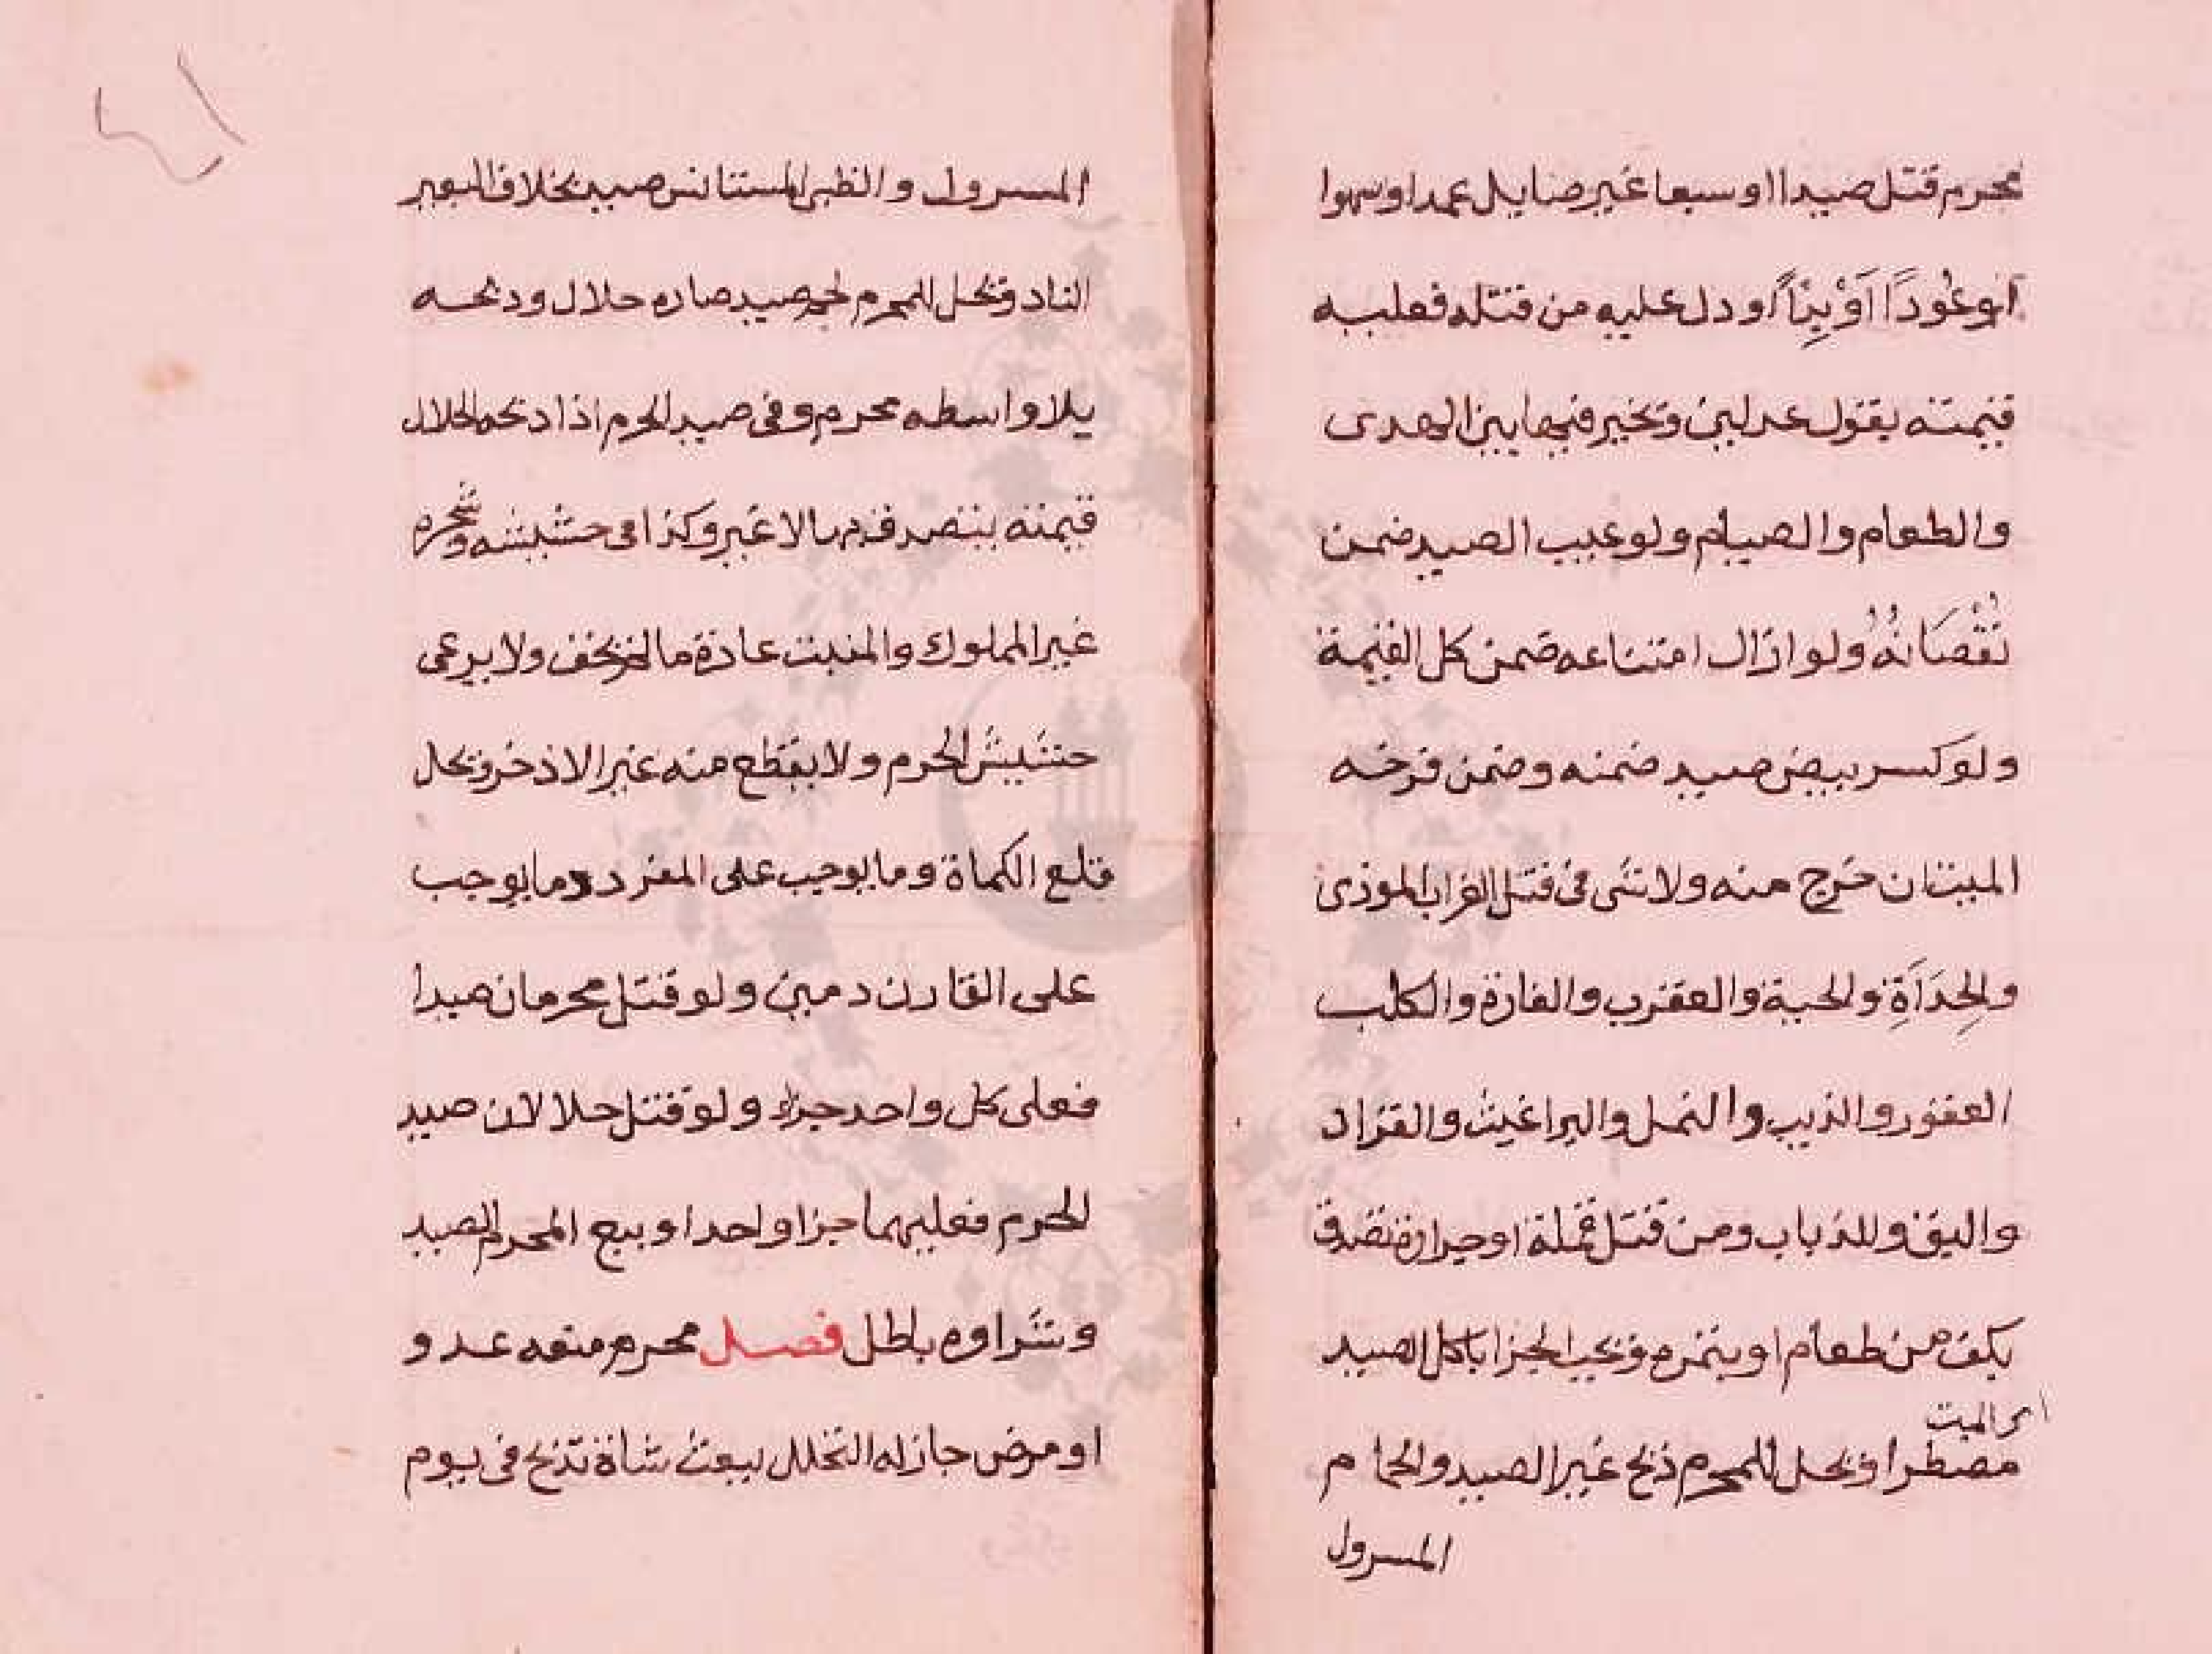 محرم قتل صيدا او سبعا غير صايل عمدا وسهوا
او عُودًا اَوْبِدْاً او دل عليه من قتله فعليه
قيمته بقول عدلين وتخير فيها بين الهدى
والطعام والصيام ولو عيب الصيد ضمن
نُقْصَانُهُ ولو ازال امتناعه ضمن كل القيمة
ولو كسر بيض صيد ضمنه وضمن فرخه
الميت ان خرج منه ولا شى فى قتل الغراب الموذى
والحِدَأَةِ والحية والعقرب والفارة والكلب
العقور والذيب والنمل والبراغيث والقراد
والبق والذباب ومن قتل قملة او جرادة تصدق
بكف من طعام او بتمره ويجب الجزا باكل الصيد
اى الميت
مضطرا ويحل للمحرم ذبح غير الصيد والحمام
المسرول
المسرول والظبى المستانس صيد بخلاف البعير
الناد ويحل للمحرم لحم صيد صاده حلال وذبحه
بلا واسطه محرم وفى صيد الحرم اذا ذبحه الحلال
قيمته يتصدق بها لا غير وكذا فى حشيشه وشجره
غير المملوك والمنبت عادة مالم يجف ولا يرعى
حشيش الحرم ولا يقطع منه غير الاذخر ويحل
قلع الكماة وما يوجب على المفرد دما يوجب
على القارن دمين ولو قتل محرمان صيدا
فعلى كل واحد جزاء ولو قتل حلالان صيد
الحرم فعليهما جزا واحدا وبيع المحرم الصيد
وشراوه باطل فصل محرم منعه عدو
او مرض جاز له التحلل يبعث شاة تذبح فى يوم